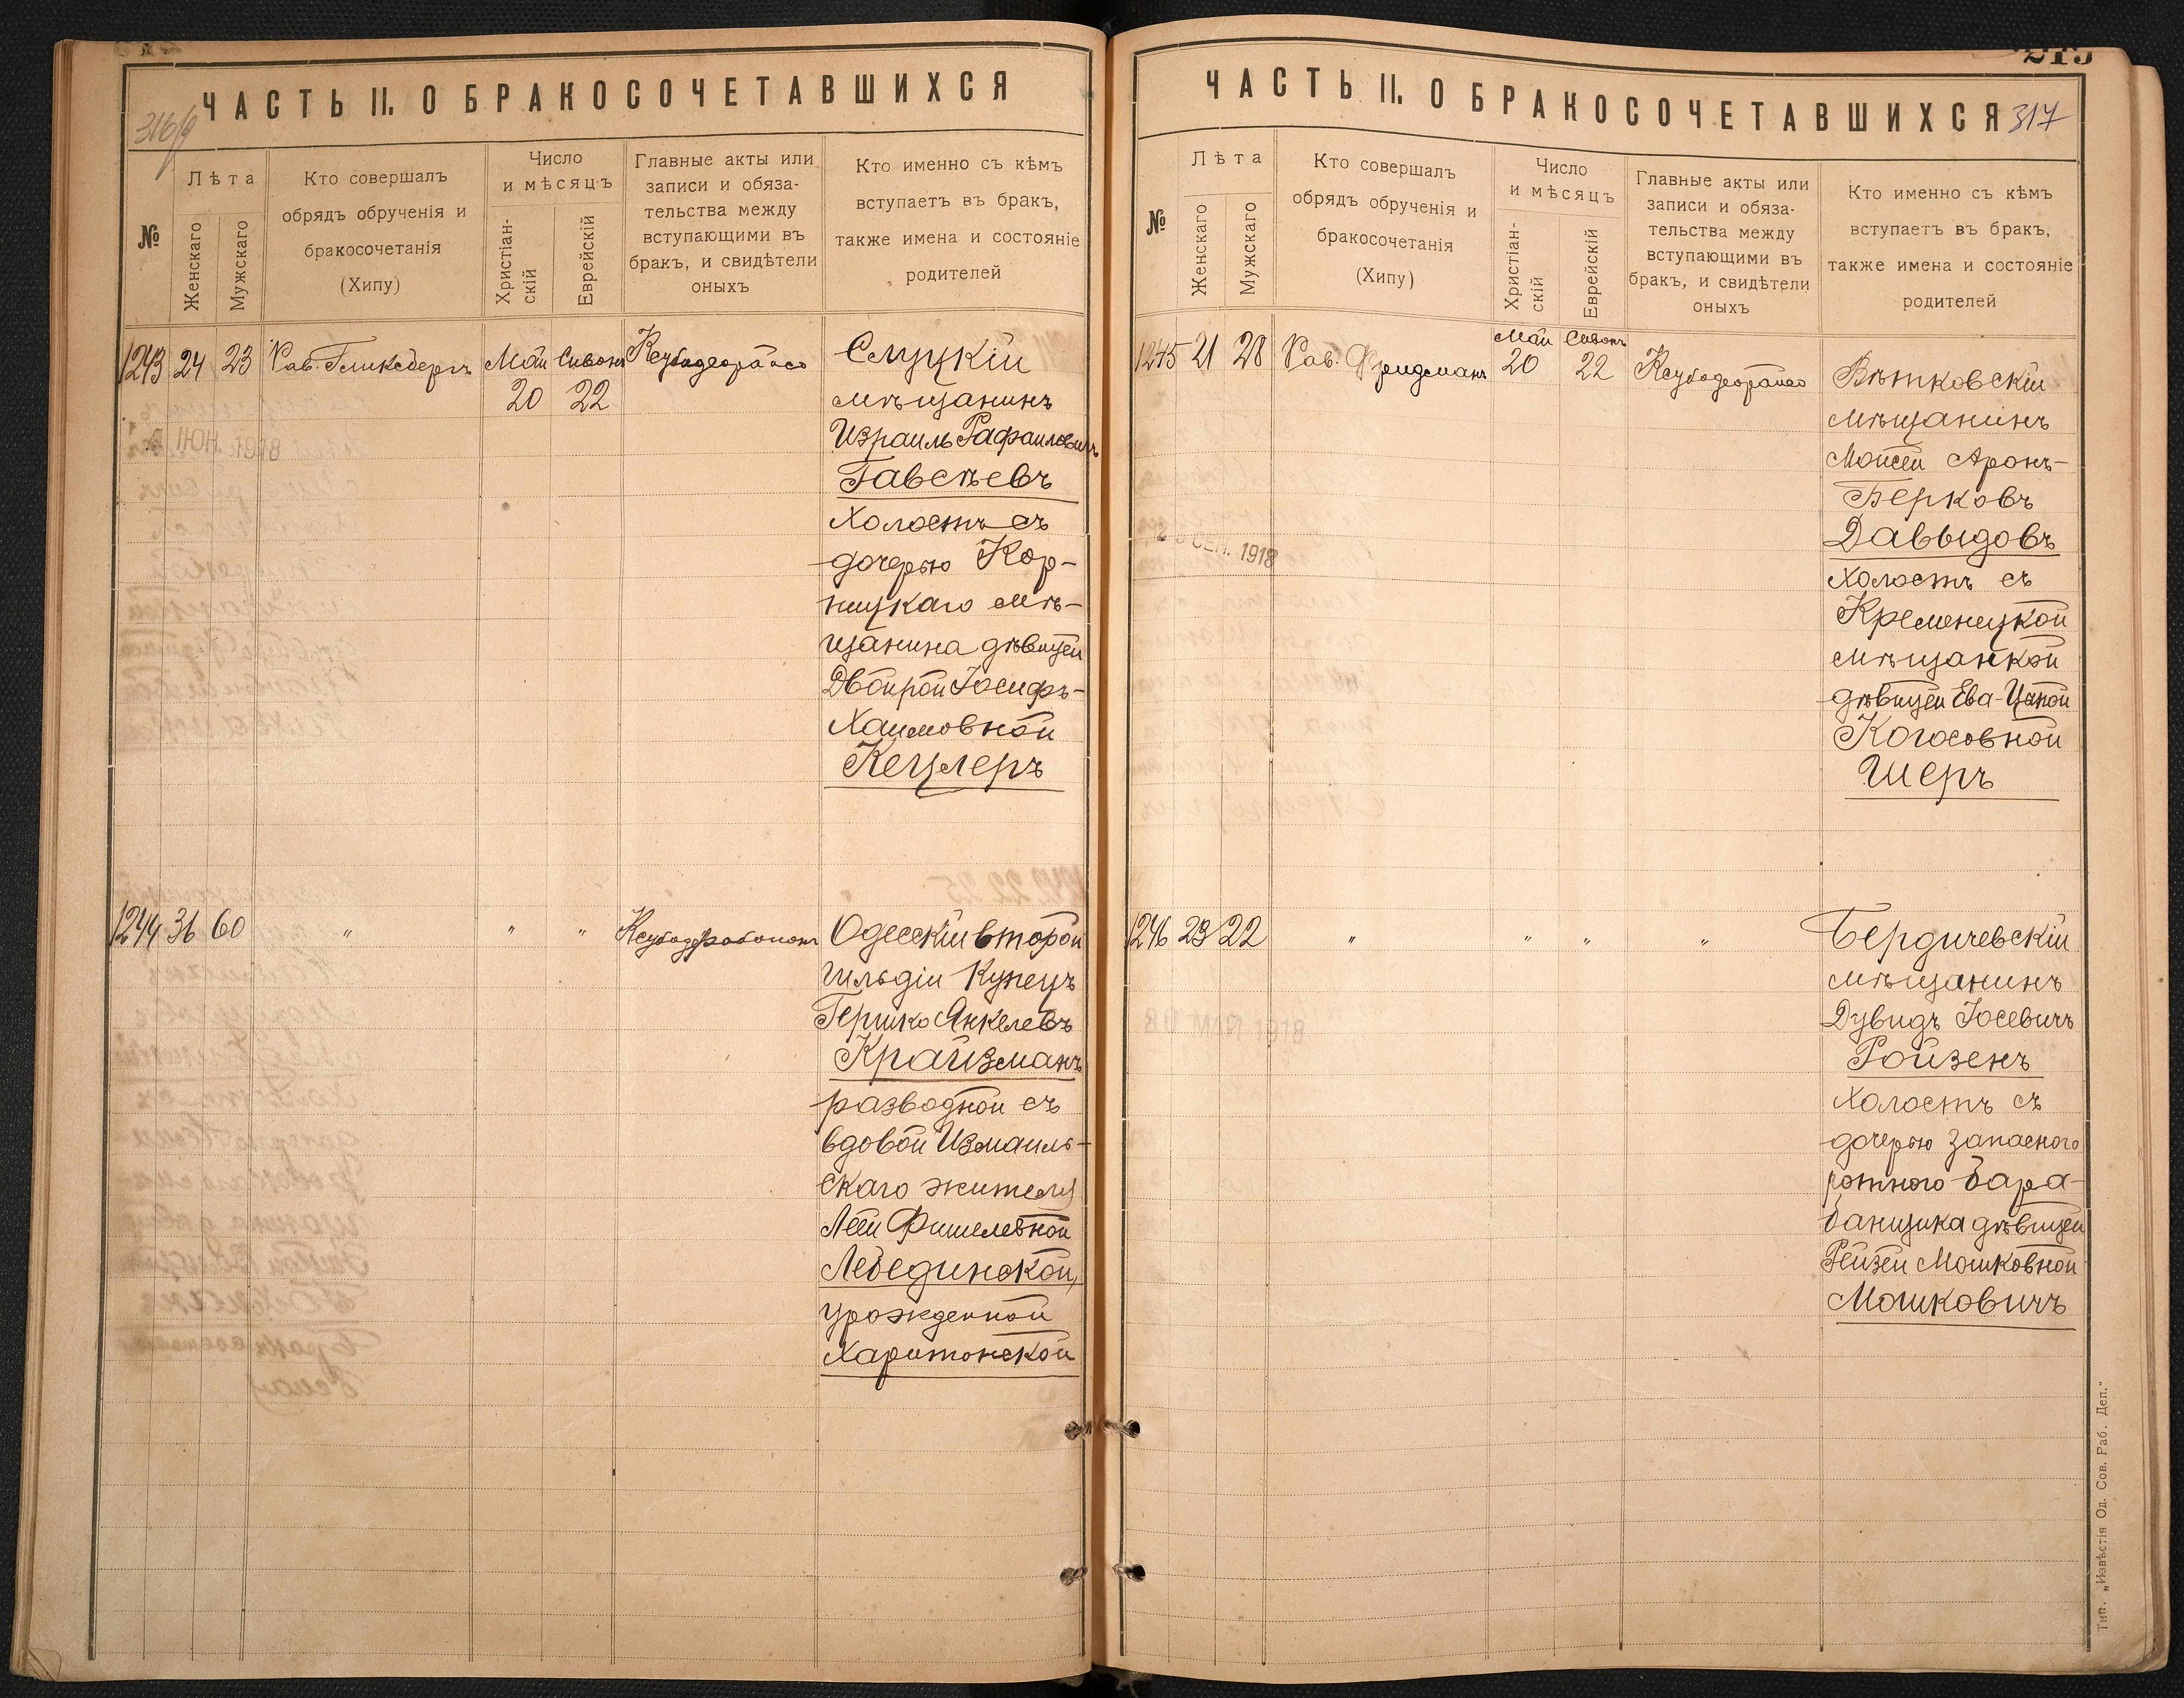 ЧАСТЬ II. О БРАКОСОЧЕТАВШИХСЯ
316
№
Лѣта
Женскаго
Мужскаго
Кто совершалъ
обрядъ обрученія и
бракосочетанія
(Хипу)
Число
и мѣсяцъ
Христіан-
скій
Еврейскій
Главные акты или
записи и обяза-
тельства между
вступающими въ
бракъ, и свидѣтели
оныхъ
Кто именно съ кѣмъ
вступаетъ въ бракъ,
также имена и состояніе
родителей
1243 24 23 Рав. Гликсбергъ Май Сивонъ Ксубодеорайсо
20 22
ІЮН. 1918
Слуцкій
мѣщанинъ
Израиль Рафаиловичъ
Гавсѣевъ
холостъ съ
дочерью Кор-
ницкаго мѣ-
щанина дѣвицей
Двойрой Іосифъ-
Хаимовной
Кецлеръ
1244 36 60 " " " Ксубодерабононъ
Одесскій второй
гильдіи Купецъ
Гершко Янкелевъ
Крайзманъ
разводной съ
вдовой Измаиль-
скаго жителя
Леей Фишелевной
Лебединской,
урожденной
Харитонской
ЧАСТЬ II. О БРАКОСОЧЕТАВШИХСЯ
317
№
Лѣта
Женскаго
Мужскаго
Кто совершалъ
обрядъ обрученія и
бракосочетанія
(Хипу)
Число
и мѣсяцъ
Христіан-
скій
Еврейскій
Главные акты или
записи и обяза-
тельства между
вступающими въ
бракъ, и свидѣтели
оныхъ
Кто именно съ кѣмъ
вступаетъ въ бракъ,
также имена и состояніе
родителей
1245 21 28 Рав. Фридманъ Май Сивонъ Ксубодеорайсо
20 22
СЕН. 1918
Вѣтковскій
мѣщанинъ
Мойсей Аронъ-
Берковъ
Давыдовъ
холостъ съ
Кременецкой
мѣщанкой
дѣвицей Ева-Ципой
Когосовной
Шеръ
1246 23 22 " " " "
МАЙ 1918
Бердичевскій
мѣщанинъ
Дувидъ Іосевичъ
Ройзенъ
холостъ съ
дочерью запаснаго
ротнаго бара-
банщика дѣвицей
Рейзей Мошковной
Мошковичъ
Тип. „Извѣстія Од. Сов. Раб. Деп."